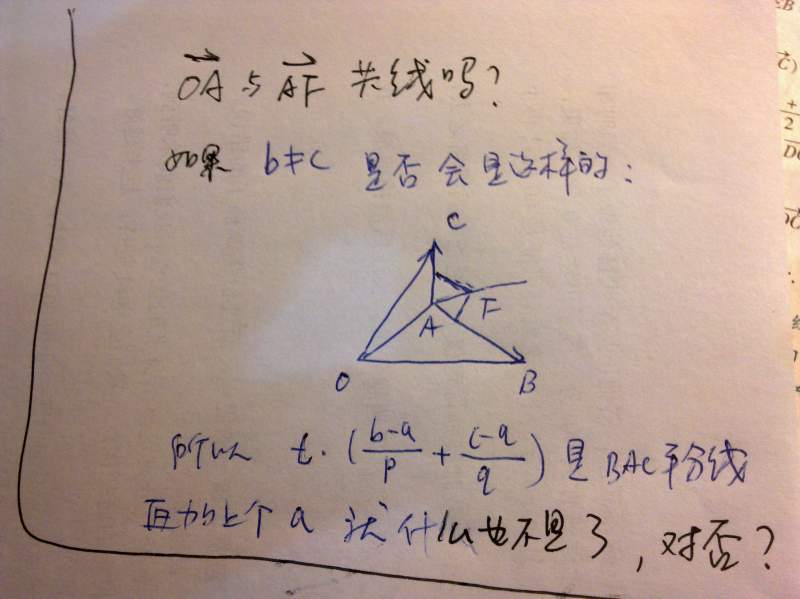 OA与AF共线吗?
如果 b≠c 是否会是这样的:
C
A
F
O
B
所以 t·(b-a/p + c-a/q) 是 BAC平分线
再加上个 a 就什么也不是了,对否?